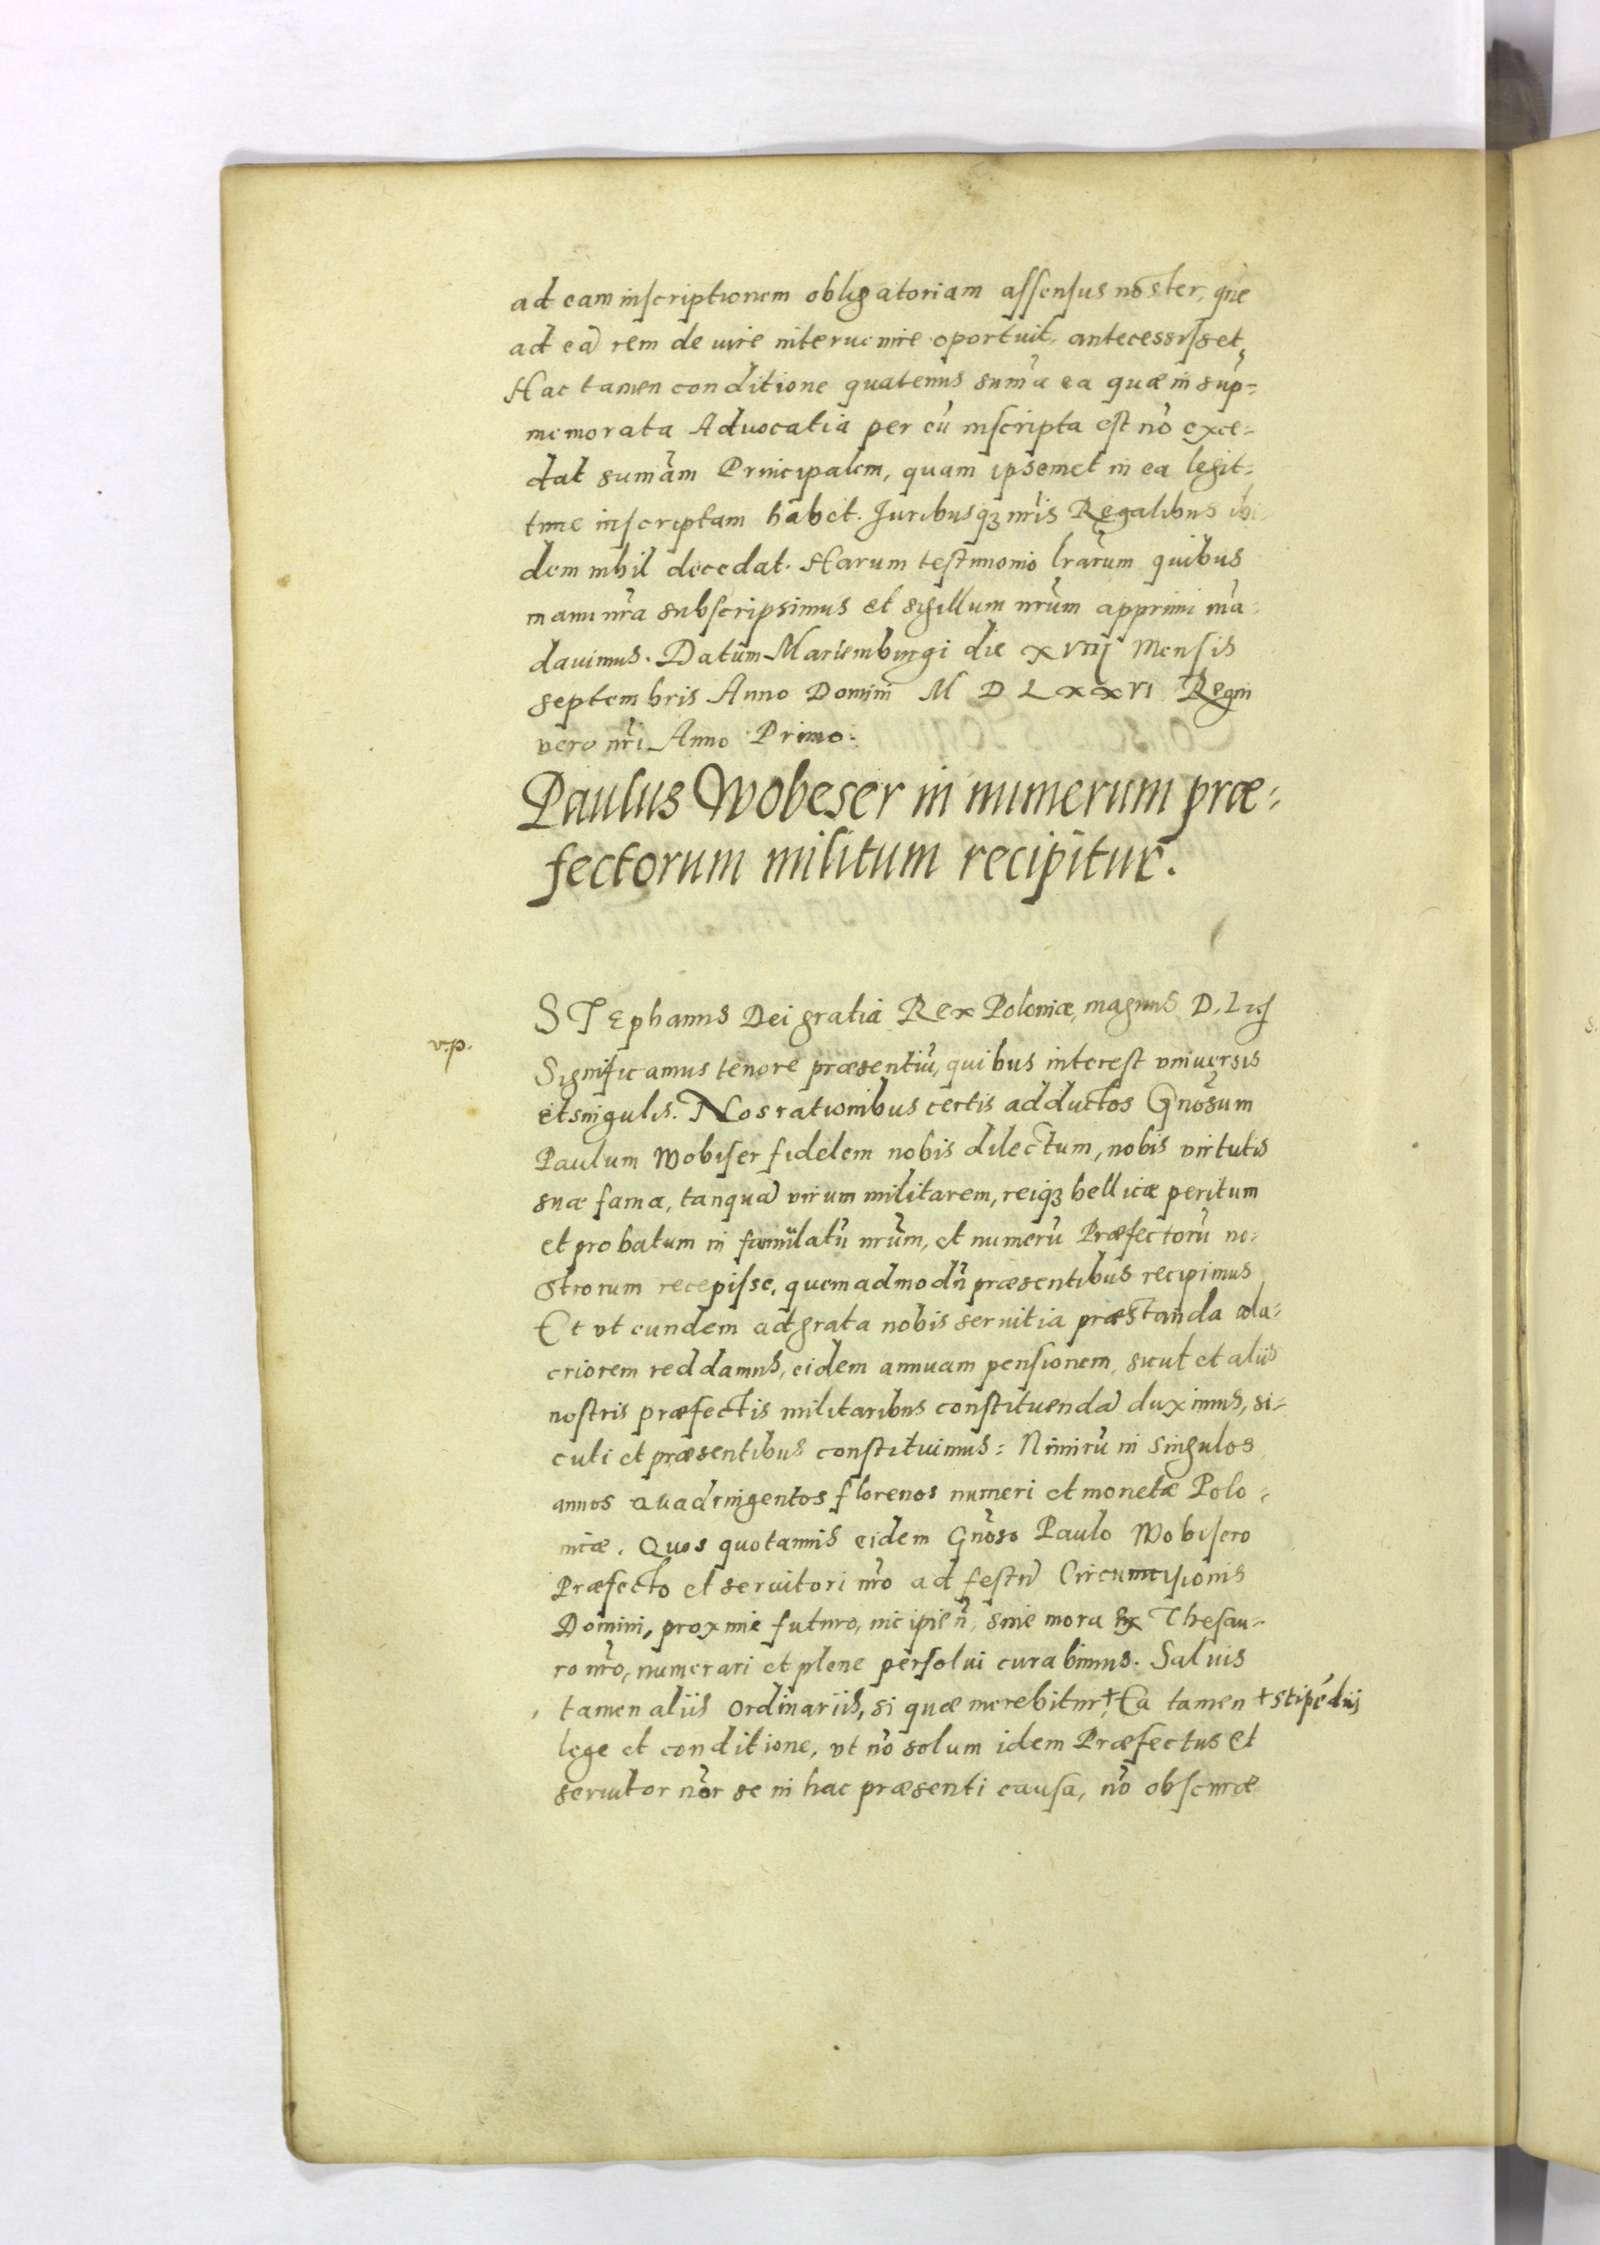 ad eam inscriptionem obligatoriam assensus noster, qui
ad eã rem de iure interuenire oportuit, antecessisset,
Hac tamen conditione quatenus sum̃a ea quæ in sup̃=
memorata Aduocatia per eũ inscripta est nõ exce=
dat sum̃am Principalem, quam ipsemet in ea legit=
time inscriptam habet. Juribusq3 nr̃is Regalibus ibi
dem nihil decedat. Harum testimonio lrãrum quibus
manu nr̃a subscripsimus et sigillum nrũm apprimi mã
dauimus. Datum Mariemburgi die XVIIJ Mensis
septembris Anno Domini M D L x x VI Regni
vero nr̃i Anno Primo.
Paulus Wobeser in numerum præ=
fectorum militum recipitur.
STEphanus Dei gratia Rex Poloniæ, magnus D. L
v.p.
Significamus tenore præsentiũ, quibus interest vniuersis
et singulis. Nos rationibus certis adductos Gnõsum
Paulum Wobiser fidelem nobis dilectum, nobis virtutis
suæ fama, tanquã virum militarem, reiq3 bellicæ peritum
et probatum in famulatũ nrũm, et numerũ Præfectorũ no=
strorum recepisse, quemadmodũ præsentibus recipimus
Et vt eundem ad grata nobis seruitia præstanda ala=
criorem reddamus, eidem annuam pensionem, sicut et aliis
nostris præfectis militaribus constituendã duximus, si=
cuti et præsentibus constituimus: Nimirũ in singulos
annos Quadringentos florenos numeri et monetæ Polo=
nicæ. Quos quotannis eidem Gnõso Paulo Wobisero
Præfecto et seruitori nr̃o ad festũ Circumcisionis
Domini, proxime futuro, incipieñ, sine mora Ex Thesau=
ro nr̃o, numerari et plene persolui curabimus. Saluis
tamen aliis ordinariis, si quæ merebitur + Ea tamen + stipẽdiis
lege et conditione, vt nõ solum idem Præfectus et
seruitor nõr se in hac præsenti causa, nõ obscuræ